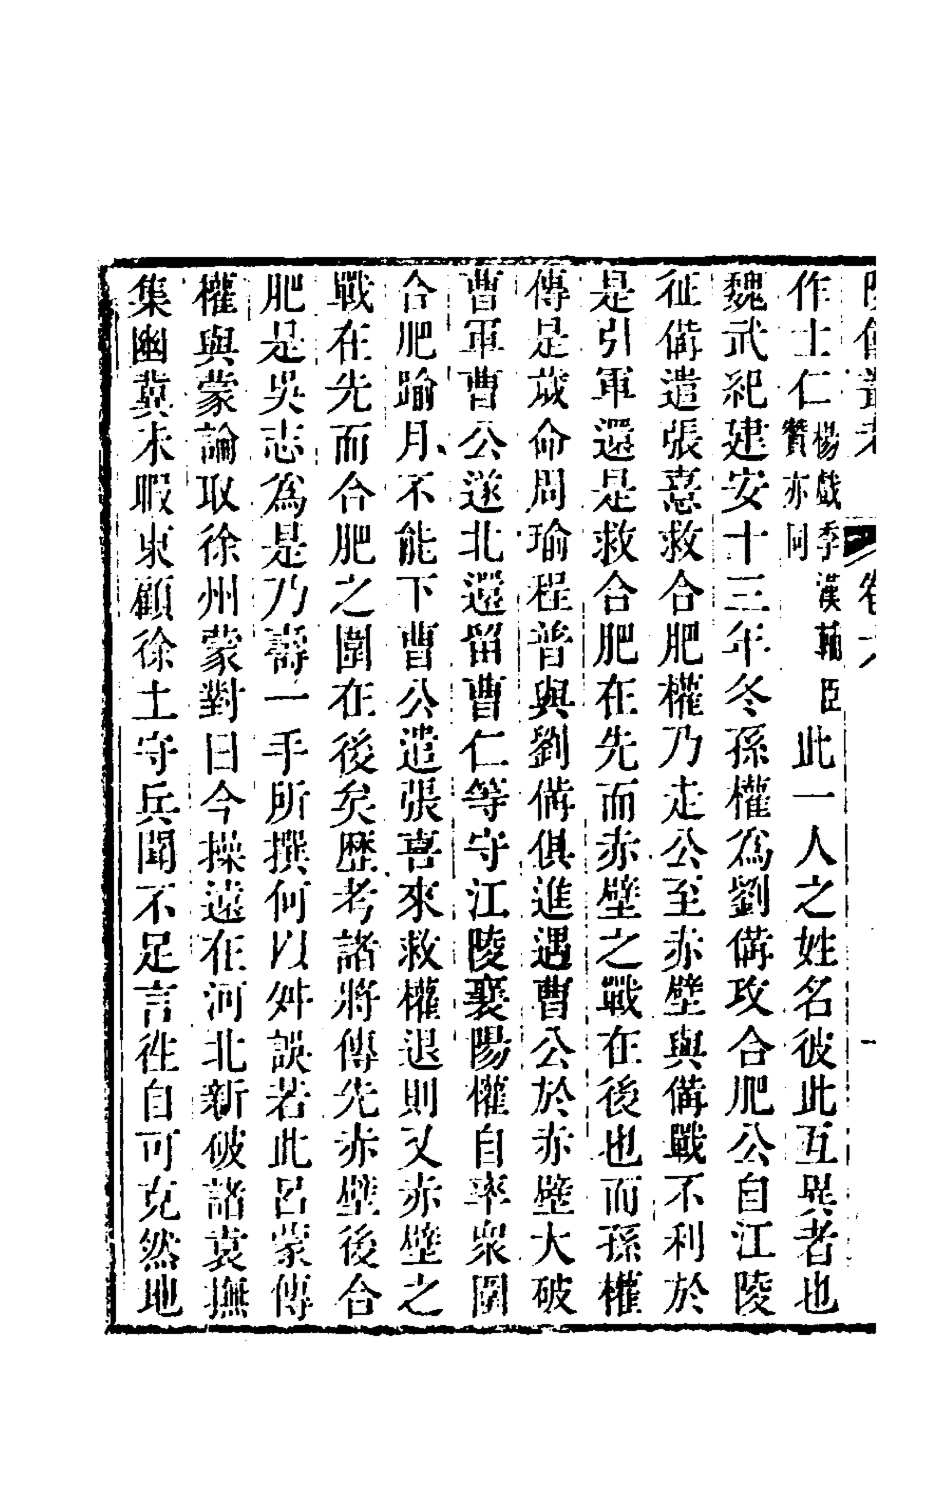 陔餘叢考 卷六 一
作士仁楊戲季漢輔臣贊亦同此一人之姓名彼此互異者也
魏武紀建安十三年冬孫權為劉備攻合肥公自江陵
征備遣張憙救合肥權乃走公至赤壁與備戰不利於
是引軍還是救合肥在先而赤壁之戰在後也而孫權
傳是歲命周瑜程普與劉備俱進遇曹公於赤壁大破
曹軍曹公遂北還留曹仁等守江陵襄陽權自率衆圍
合肥踰月不能下曹公遣張喜來救權退則又赤壁之
戰在先而合肥之圍在後矣歷考諸將傳先赤壁後合
肥是吳志為是乃壽一手所撰何以舛誤若此呂蒙傳
權與蒙論取徐州蒙對曰今操遠在河北新破諸袁撫
集幽冀未暇東顧徐土守兵聞不足言往自可克然地